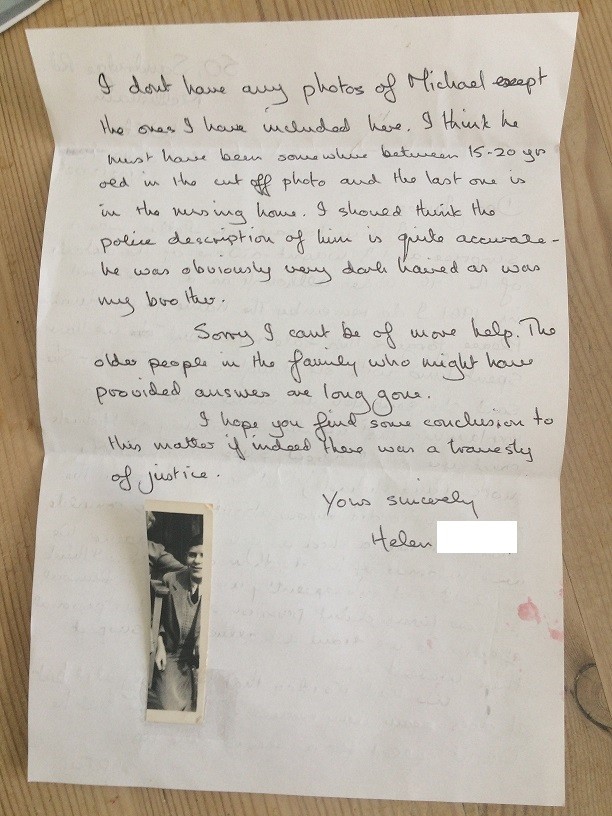 I dont have any photos of Michael except
the ones I have included here. I think he
must have been somewhere between 15-20 yrs
old in the cut off photo and the last one is
in the nursing home. I should think the
police description of him is quite accurate -
he was obviously very dark haired as was
my brother.
Sorry I cant be of more help. The
older people in the family who might have
provided answers are long gone.
I hope you find some conclusion to
this matter if indeed there was a travesty
of justice.
Yours sincerely
Helen